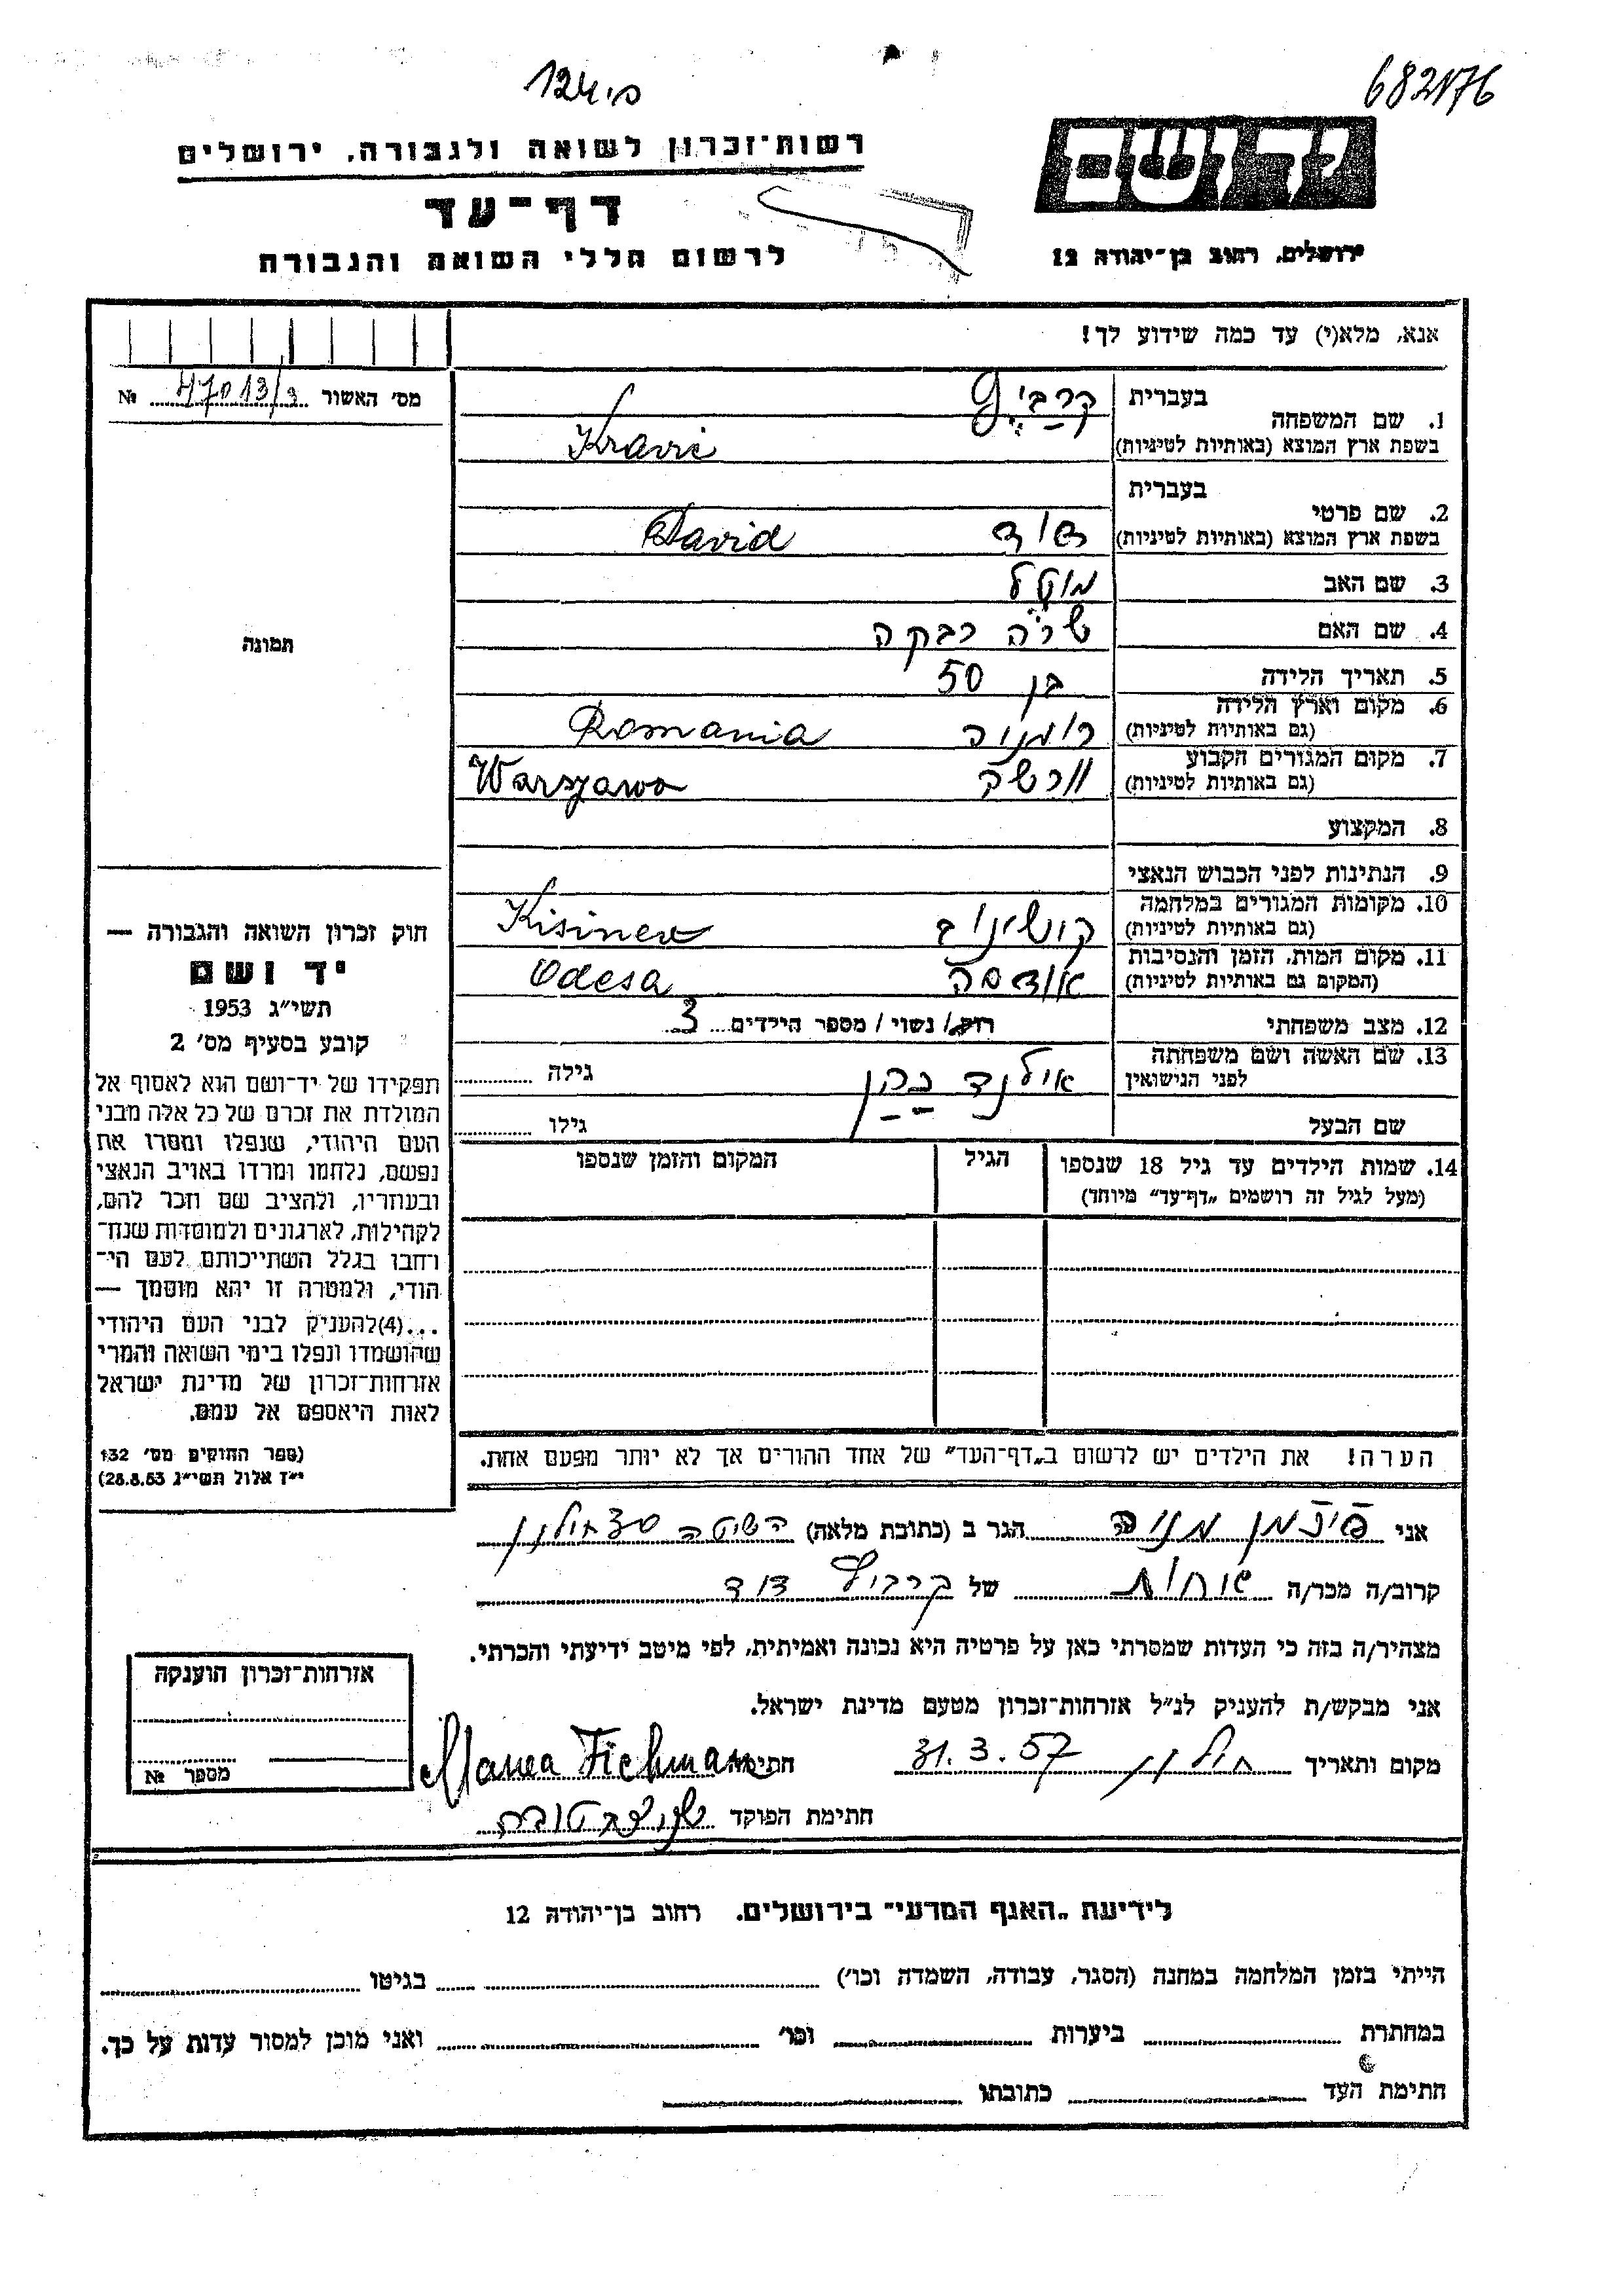 124.פ
682176
יד ושם
רשות־זכרון לשואה ולגבורה, ירושלים
דף־עד
לרשום חללי השואה והגבורה
ירושלים, רחוב בן־יהודה 12
אנא, מלא(י) עד כמה שידוע לך!
מס׳ האשור 47013/3 №
תמונה
1. שם המשפחה
בעברית
בשפת ארץ המוצא (באותיות לטיניות)
Kravic
2. שם פרטי
בעברית
בשפת ארץ המוצא (באותיות לטיניות) דוד David
3. שם האב מוטל
4. שם האם שרה רבקה
5. תאריך הלידה בן 50
6. מקום וארץ הלידה
(גם באותיות לטיניות) רומניה Romania
7. מקום המגורים הקבוע
(גם באותיות לטיניות) וורשה Warszawa
8. המקצוע
9. הנתינות לפני הכבוש הנאצי
10. מקומות המגורים במלחמה
(גם באותיות לטיניות) קישינוב Kisinev
11. מקום המות, הזמן והנסיבות
(המקום גם באותיות לטיניות) אודסה Odesa
12. מצב משפחתי רווק / נשוי / מספר הילדים 3
13. שם האשה ושם משפחתה
לפני הנישואין כהן גילה
שם הבעל גילו
14. שמות הילדים עד גיל 18 שנספו
(מעל לגיל זה רושמים „דף־עד” מיוחד)
הגיל
המקום והזמן שנספו
הערה! את הילדים יש לרשום ב„דף־העד” של אחד ההורים אך לא יותר מפעם אחת.
חוק זכרון השואה והגבורה —
יד ושם
תשי״ג 1953
קובע בסעיף מס׳ 2
תפקידו של יד־ושם הוא לאסוף אל
המולדת את זכרם של כל אלה מבני
העם היהודי, שנפלו ומסרו את
נפשם, נלחמו ומרדו באויב הנאצי
ובעוזריו, ולהציב שם וזכר להם,
לקהילות, לארגונים ולמוסדות שנח־
רחבו בגלל השתייכותם לעם הי־
הודי, ולמטרה זו יהא מוסמך —
...(4)להעניק לבני העם היהודי
שהושמדו ונפלו בימי השואה והמרי
אזרחות־זכרון של מדינת ישראל
לאות היאספם אל עמם.
(ספר החוקים מס׳ 132
י״ז אלול תשי״ג 28.8.53)
אני פיכמן מניה הגר ב (כתובת מלאה)
קרוב/ה מכר/ה אחות של דוד
מצהיר/ה בזה כי העדות שמסרתי כאן על פרטיה היא נכונה ואמיתית, לפי מיטב ידיעתי והכרתי.
אני מבקש/ת להעניק לנ״ל אזרחות־זכרון מטעם מדינת ישראל.
מקום ותאריך חולון 31.3.57 חתימה Manea Fichman
חתימת הפוקד
אזרחות־זכרון הוענקה
מספר №
לידיעת „האגף המדעי” בירושלים. רחוב בן־יהודה 12
הייתי בזמן המלחמה במחנה (הסגר, עבודה, השמדה וכו׳) בגיטו
במחתרת ביערות וכו׳ ואני מוכן למסור עדות על כך.
חתימת העד כתובתו